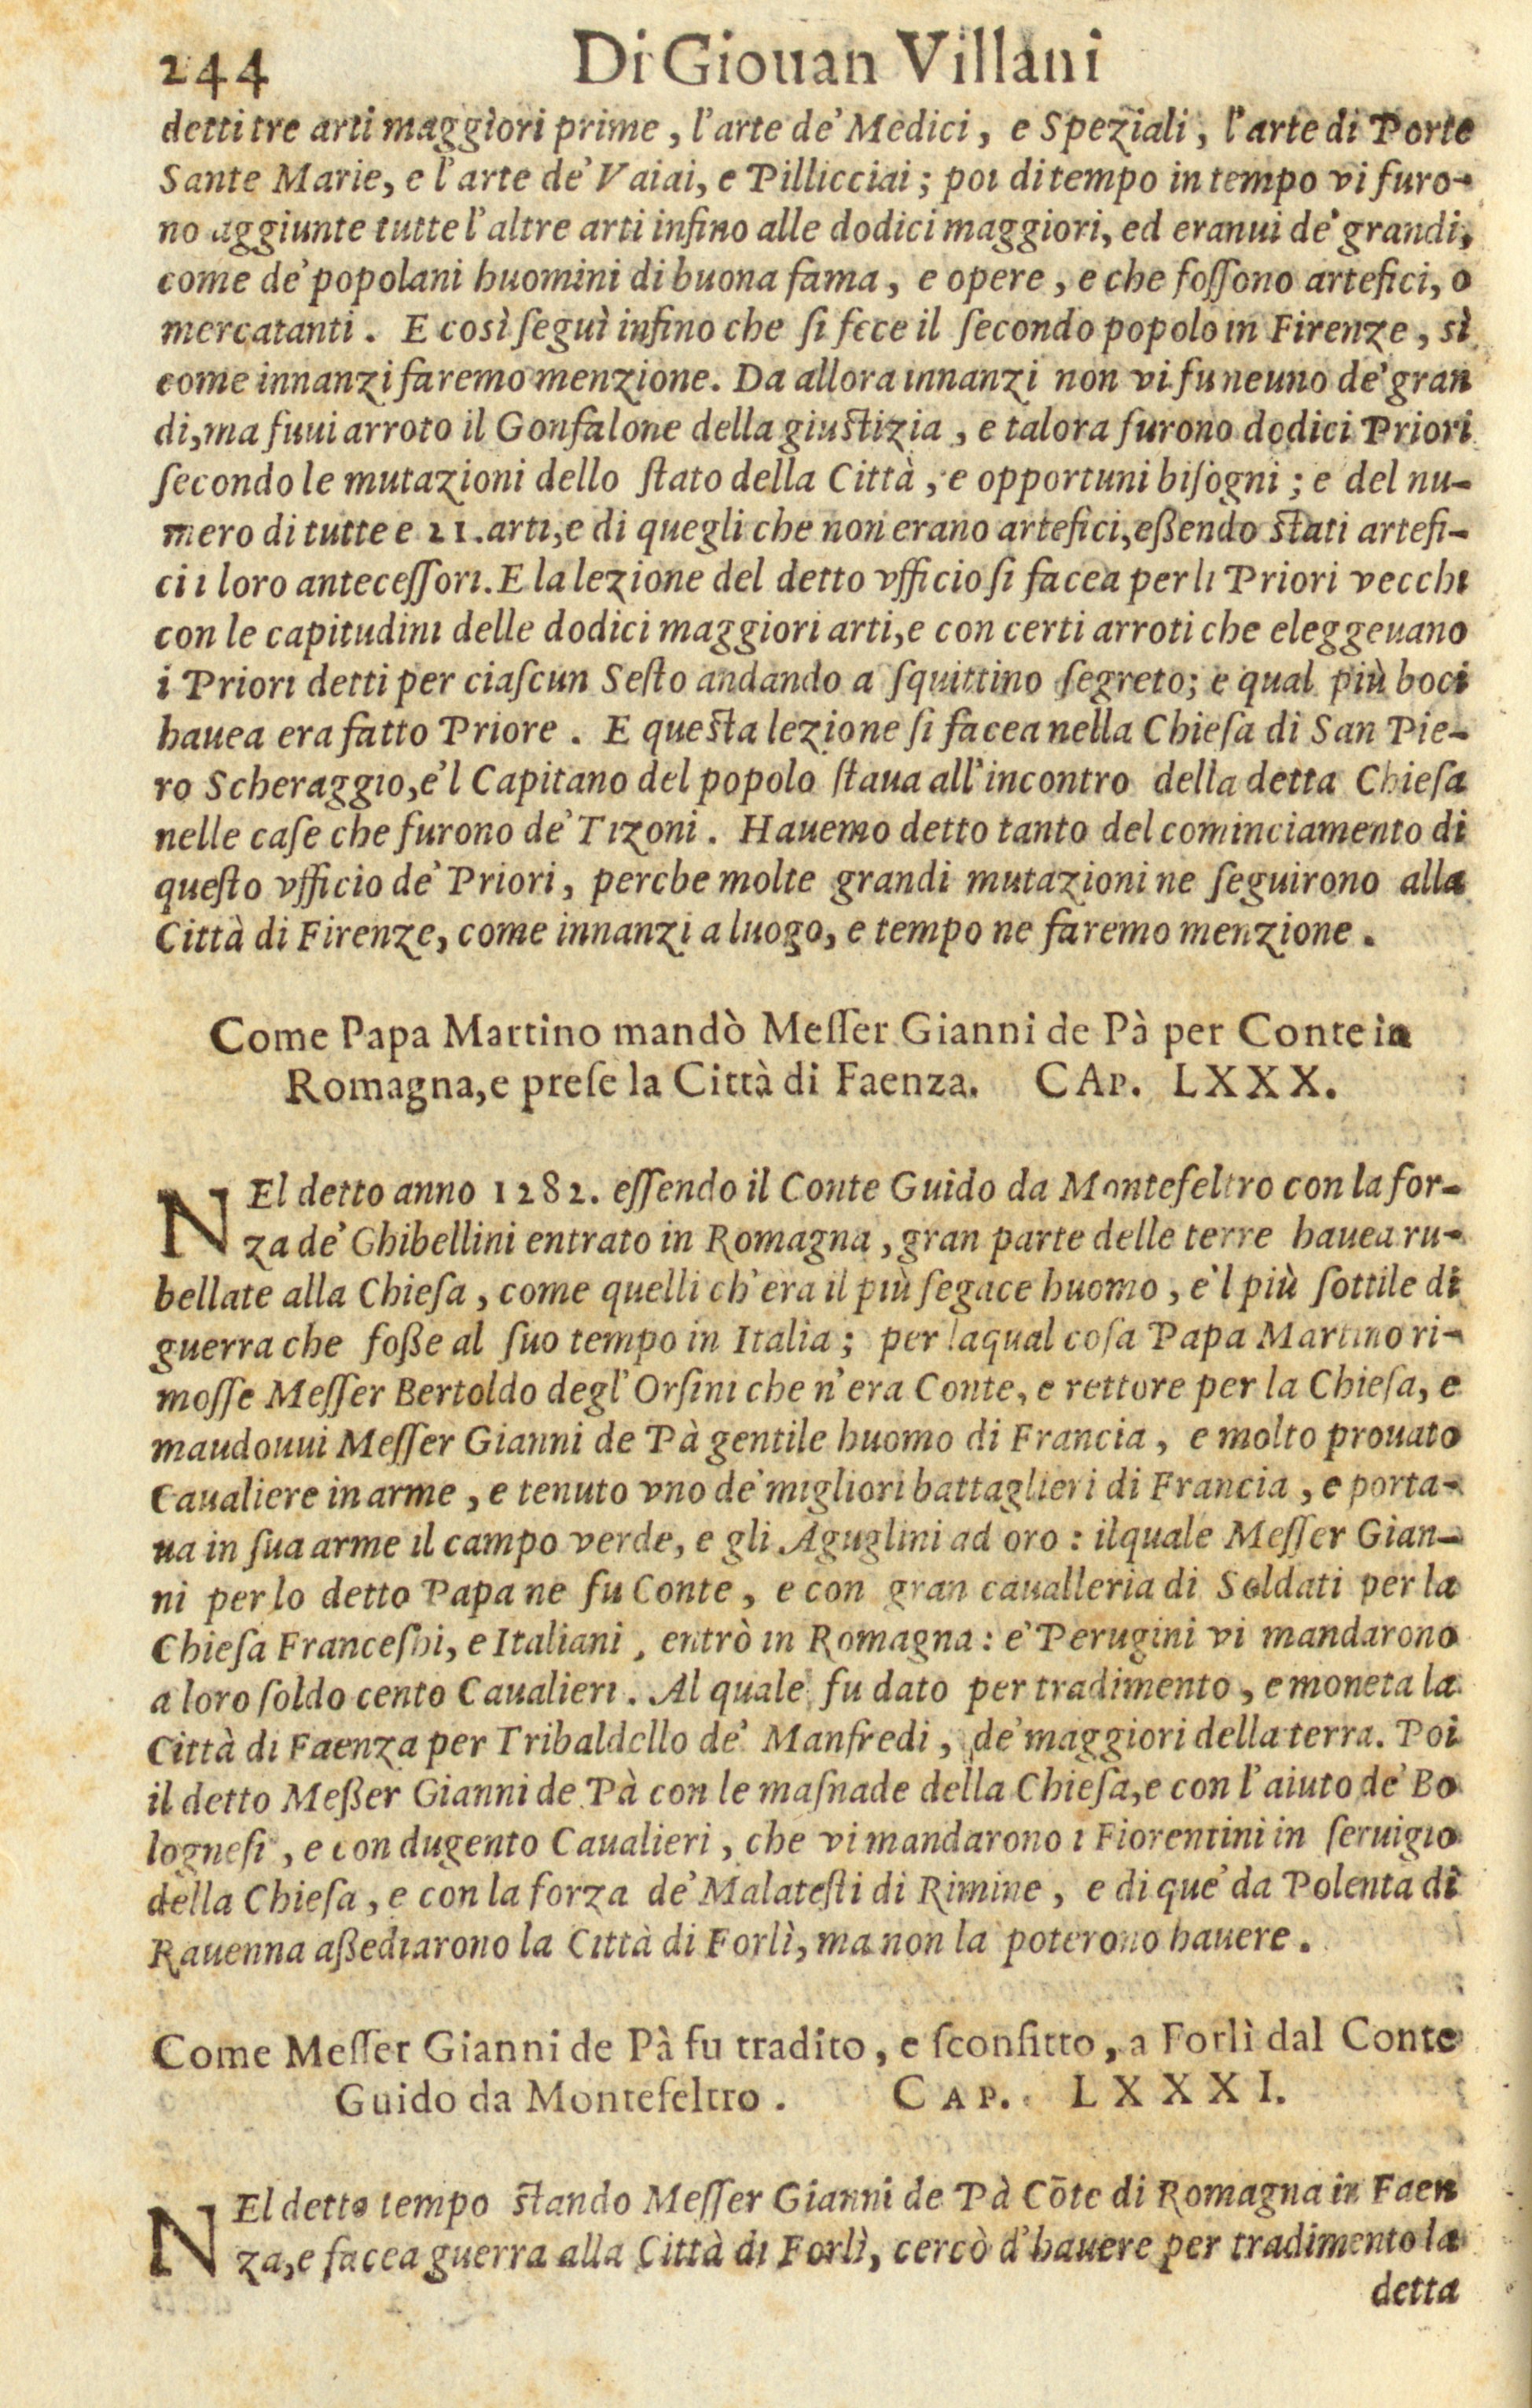 244 Di Giouan Villani
detti tre arti maggiori prime, l'arte de' Medici, e Speziali, l'arte di Porte
Sante Marie, e l'arte de' Vaiai, e Pillicciai; poi di tempo in tempo vi furo-
no aggiunte tutte l'altre arti infino alle dodici maggiori, ed eranui de' grandi,
come de' popolani huomini di buona fama, e opere, e che foſſono artefici, o
mercatanti. E così ſeguì infino che ſi fece il ſecondo popolo in Firenze, sì
come innanzi faremo menzione. Da allora innanzi non vi fu neuno de' gran
di, ma fuui arroto il Gonfalone della giuſtizia, e talora furono dodici Priori
ſecondo le mutazioni dello ſtato della Città, e opportuni biſogni; e del nu-
mero di tutte e 21. arti, e di quegli che non erano artefici, eßendo ſtati artefi-
ci i loro anteceſſori. E la lezione del detto vfficio ſi facea per li Priori vecchi
con le capitudini delle dodici maggiori arti, e con certi arroti che eleggeuano
i Priori detti per ciaſcun Seſto andando a ſquittino ſegreto; e qual più boci
hauea era fatto Priore. E queſta lezione ſi facea nella Chieſa di San Pie-
ro Scheraggio, e'l Capitano del popolo ſtaua all'incontro della detta Chieſa
nelle caſe che furono de' Tizoni. Hauemo detto tanto del cominciamento di
queſto vfficio de' Priori, perche molte grandi mutazioni ne ſeguirono alla
Città di Firenze, come innanzi a luogo, e tempo ne faremo menzione.
Come Papa Martino mandò Meſſer Gianni de Pà per Conte in
Romagna, e preſe la Città di Faenza. CAP. LXXX.
NEl detto anno 1282. eſſendo il Conte Guido da Montefeltro con la for-
za de' Ghibellini entrato in Romagna, gran parte delle terre hauea ru-
bellate alla Chieſa, come quelli ch'era il più ſegace huomo, e'l più ſottile di
guerra che foße al ſuo tempo in Italia; per laqual coſa Papa Martino ri-
moſſe Meſſer Bertoldo degl'Orſini che n'era Conte, e rettore per la Chieſa, e
maudouui Meſſer Gianni de Pà gentile huomo di Francia, e molto prouato
Caualiere in arme, e tenuto vno de' migliori battaglieri di Francia, e porta-
ua in ſua arme il campo verde, e gli Aguglini ad oro: ilquale Meſſer Gian-
ni per lo detto Papa ne fu Conte, e con gran caualleria di Soldati per la
Chieſa Franceſhi, e Italiani, entrò in Romagna: e' Perugini vi mandarono
a loro ſoldo cento Caualieri. Al quale fu dato per tradimento, e moneta la
Città di Faenza per Tribaldello de' Manfredi, de' maggiori della terra. Poi
il detto Meßer Gianni de Pà con le maſnade della Chieſa, e con l'aiuto de' Bo
logneſi, e con dugento Caualieri, che vi mandarono i Fiorentini in ſeruigio
della Chieſa, e con la forza de' Malateſti di Rimine, e di que' da Polenta di
Rauenna aßediarono la Città di Forlì, ma non la poterono hauere.
Come Meſſer Gianni de Pà fu tradito, e ſconfitto, a Forlì dal Conte
Guido da Montefeltro. CAP. LXXXI.
NEl detto tempo ſtando Meſſer Gianni de Pà Cōte di Romagna in Faen
za, e facea guerra alla Città di Forlì, cercò d'hauere per tradimento la
detta